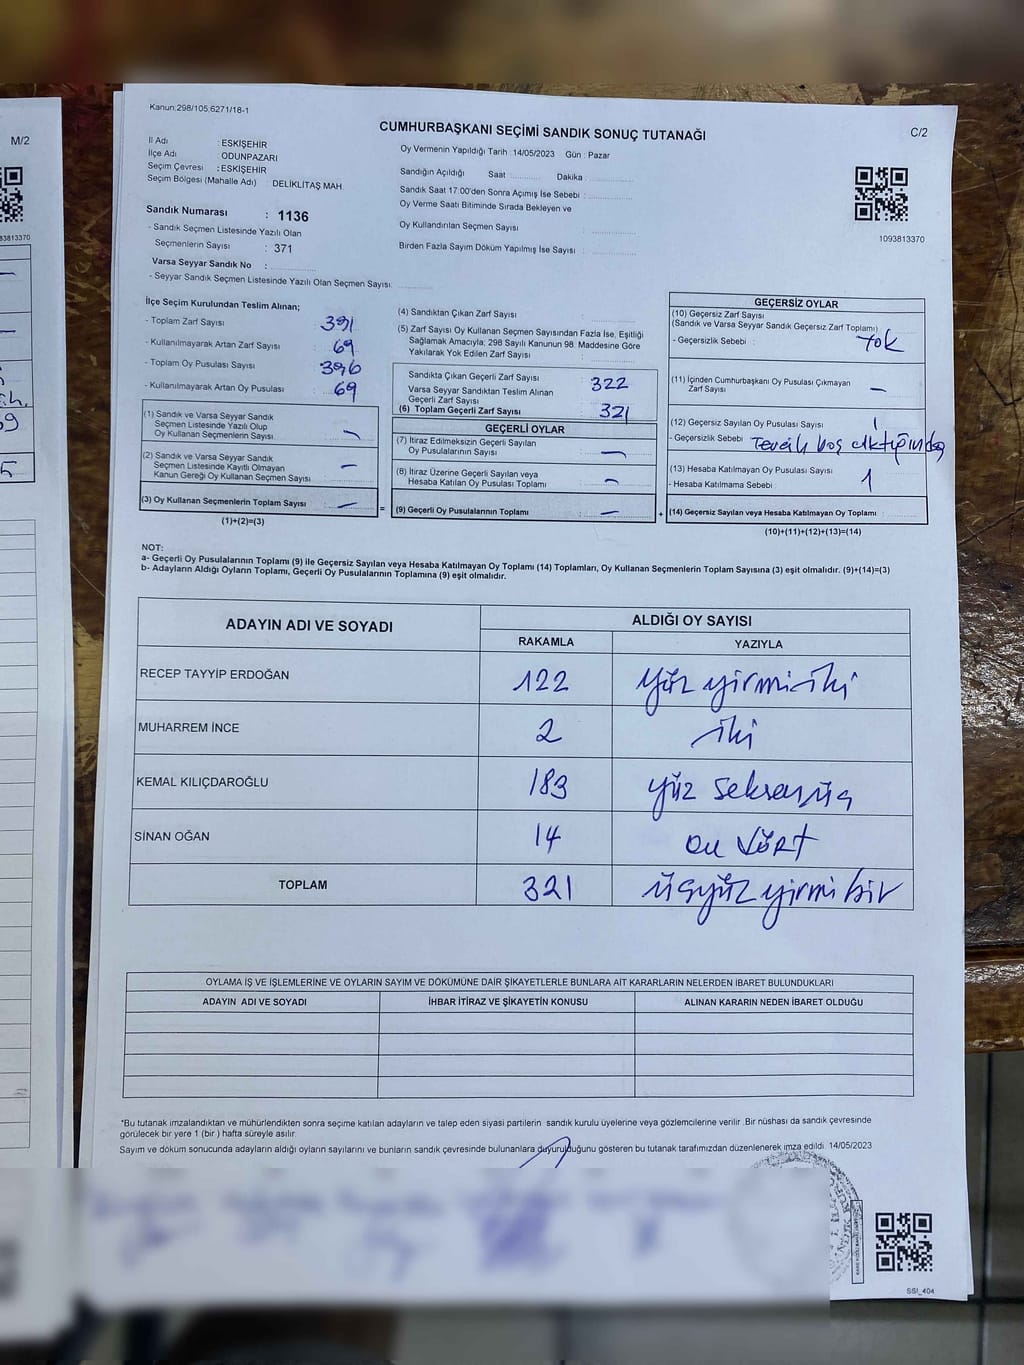 M/2
93813370
Kanun:298/105,6271/18-1
CUMHURBAŞKANI SEÇİMİ SANDIK SONUÇ TUTANAĞI
C/2
İl Adı : ESKİŞEHİR
İlçe Adı : ODUNPAZARI
Seçim Çevresi : ESKİŞEHİR
Seçim Bölgesi (Mahalle Adı) DELİKLİTAŞ MAH.
Oy Vermenin Yapıldığı Tarih : 14/05/2023 Gün : Pazar
Sandığın Açıldığı Saat : Dakika :
Sandık Saat 17:00'den Sonra Açımış İse Sebebi :
Oy Verme Saati Bitiminde Sırada Bekleyen ve
Oy Kullandırılan Seçmen Sayısı :
Birden Fazla Sayım Döküm Yapılmış İse Sayısı :
1093813370
Sandık Numarası : 1136
- Sandık Seçmen Listesinde Yazılı Olan
Seçmenlerin Sayısı : 371
Varsa Seyyar Sandık No :
- Seyyar Sandık Seçmen Listesinde Yazılı Olan Seçmen Sayısı:
İlçe Seçim Kurulundan Teslim Alınan;
- Toplam Zarf Sayısı : 391
- Kullanılmayarak Artan Zarf Sayısı : 69
- Toplam Oy Pusulası Sayısı : 396
- Kullanılmayarak Artan Oy Pusulası : 69
(1) Sandık ve Varsa Seyyar Sandık
Seçmen Listesinde Yazılı Olup
Oy Kullanan Seçmenlerin Sayısı : -
(2) Sandık ve Varsa Seyyar Sandık
Seçmen Listesinde Kayıtlı Olmayan
Kanun Gereği Oy Kullanan Seçmen Sayısı : -
(3) Oy Kullanan Seçmenlerin Toplam Sayısı : -
(1)+(2)=(3)
=
(4) Sandıktan Çıkan Zarf Sayısı :
(5) Zarf Sayısı Oy Kullanan Seçmen Sayısından Fazla İse, Eşitliği
Sağlamak Amacıyla; 298 Sayılı Kanunun 98. Maddesine Göre
Yakılarak Yok Edilen Zarf Sayısı :
Sandıkta Çıkan Geçerli Zarf Sayısı : 322
Varsa Seyyar Sandıktan Teslim Alınan
Geçerli Zarf Sayısı :
(6) Toplam Geçerli Zarf Sayısı : 321
GEÇERLİ OYLAR
(7) İtiraz Edilmeksizin Geçerli Sayılan
Oy Pusulalarının Sayısı : -
(8) İtiraz Üzerine Geçerli Sayılan veya
Hesaba Katılan Oy Pusulası Toplamı : -
(9) Geçerli Oy Pusulalarının Toplamı : -
+
GEÇERSİZ OYLAR
(10) Geçersiz Zarf Sayısı
(Sandık ve Varsa Seyyar Sandık Geçersiz Zarf Toplamı) :
- Geçersizlik Sebebi : Yok
(11) İçinden Cumhurbaşkanı Oy Pusulası Çıkmayan
Zarf Sayısı : -
(12) Geçersiz Sayılan Oy Pusulası Sayısı : 1
- Geçersizlik Sebebi : Tercih boş
(13) Hesaba Katılmayan Oy Pusulası Sayısı : 1
- Hesaba Katılmama Sebebi :
(14) Geçersiz Sayılan veya Hesaba Katılmayan Oy Toplamı :
(10)+(11)+(12)+(13)=(14)
NOT:
a- Geçerli Oy Pusulalarının Toplamı (9) ile Geçersiz Sayılan veya Hesaba Katılmayan Oy Toplamı (14) Toplamları, Oy Kullanan Seçmenlerin Toplam Sayısına (3) eşit olmalıdır. (9)+(14)=(3)
b- Adayların Aldığı Oyların Toplamı, Geçerli Oy Pusulalarının Toplamına (9) eşit olmalıdır.
ADAYIN ADI VE SOYADI
ALDIĞI OY SAYISI
RAKAMLA YAZIYLA
RECEP TAYYİP ERDOĞAN 122 yüz yirmi iki
MUHARREM İNCE 2 iki
KEMAL KILIÇDAROĞLU 183 yüz seksen üç
SİNAN OĞAN 14 on dört
TOPLAM 321 üçyüz yirmi bir
OYLAMA İŞ VE İŞLEMLERİNE VE OYLARIN SAYIM VE DÖKÜMÜNE DAİR ŞİKAYETLERLE BUNLARA AİT KARARLARIN NELERDEN İBARET BULUNDUKLARI
ADAYIN ADI VE SOYADI İHBAR İTİRAZ VE ŞİKAYETİN KONUSU ALINAN KARARIN NEDEN İBARET OLDUĞU
*Bu tutanak imzalandıktan ve mühürlendikten sonra seçime katılan adayların ve talep eden siyasi partilerin sandık kurulu üyelerine veya gözlemcilerine verilir. Bir nüshası da sandık çevresinde
görülecek bir yere 1 (bir ) hafta süreyle asılır.
Sayım ve döküm sonucunda adayların aldığı oyların sayılarını ve bunların sandık çevresinde bulunanlara duyurulduğunu gösteren bu tutanak tarafımızdan düzenlenerek imza edildi. 14/05/2023
SSİ_404